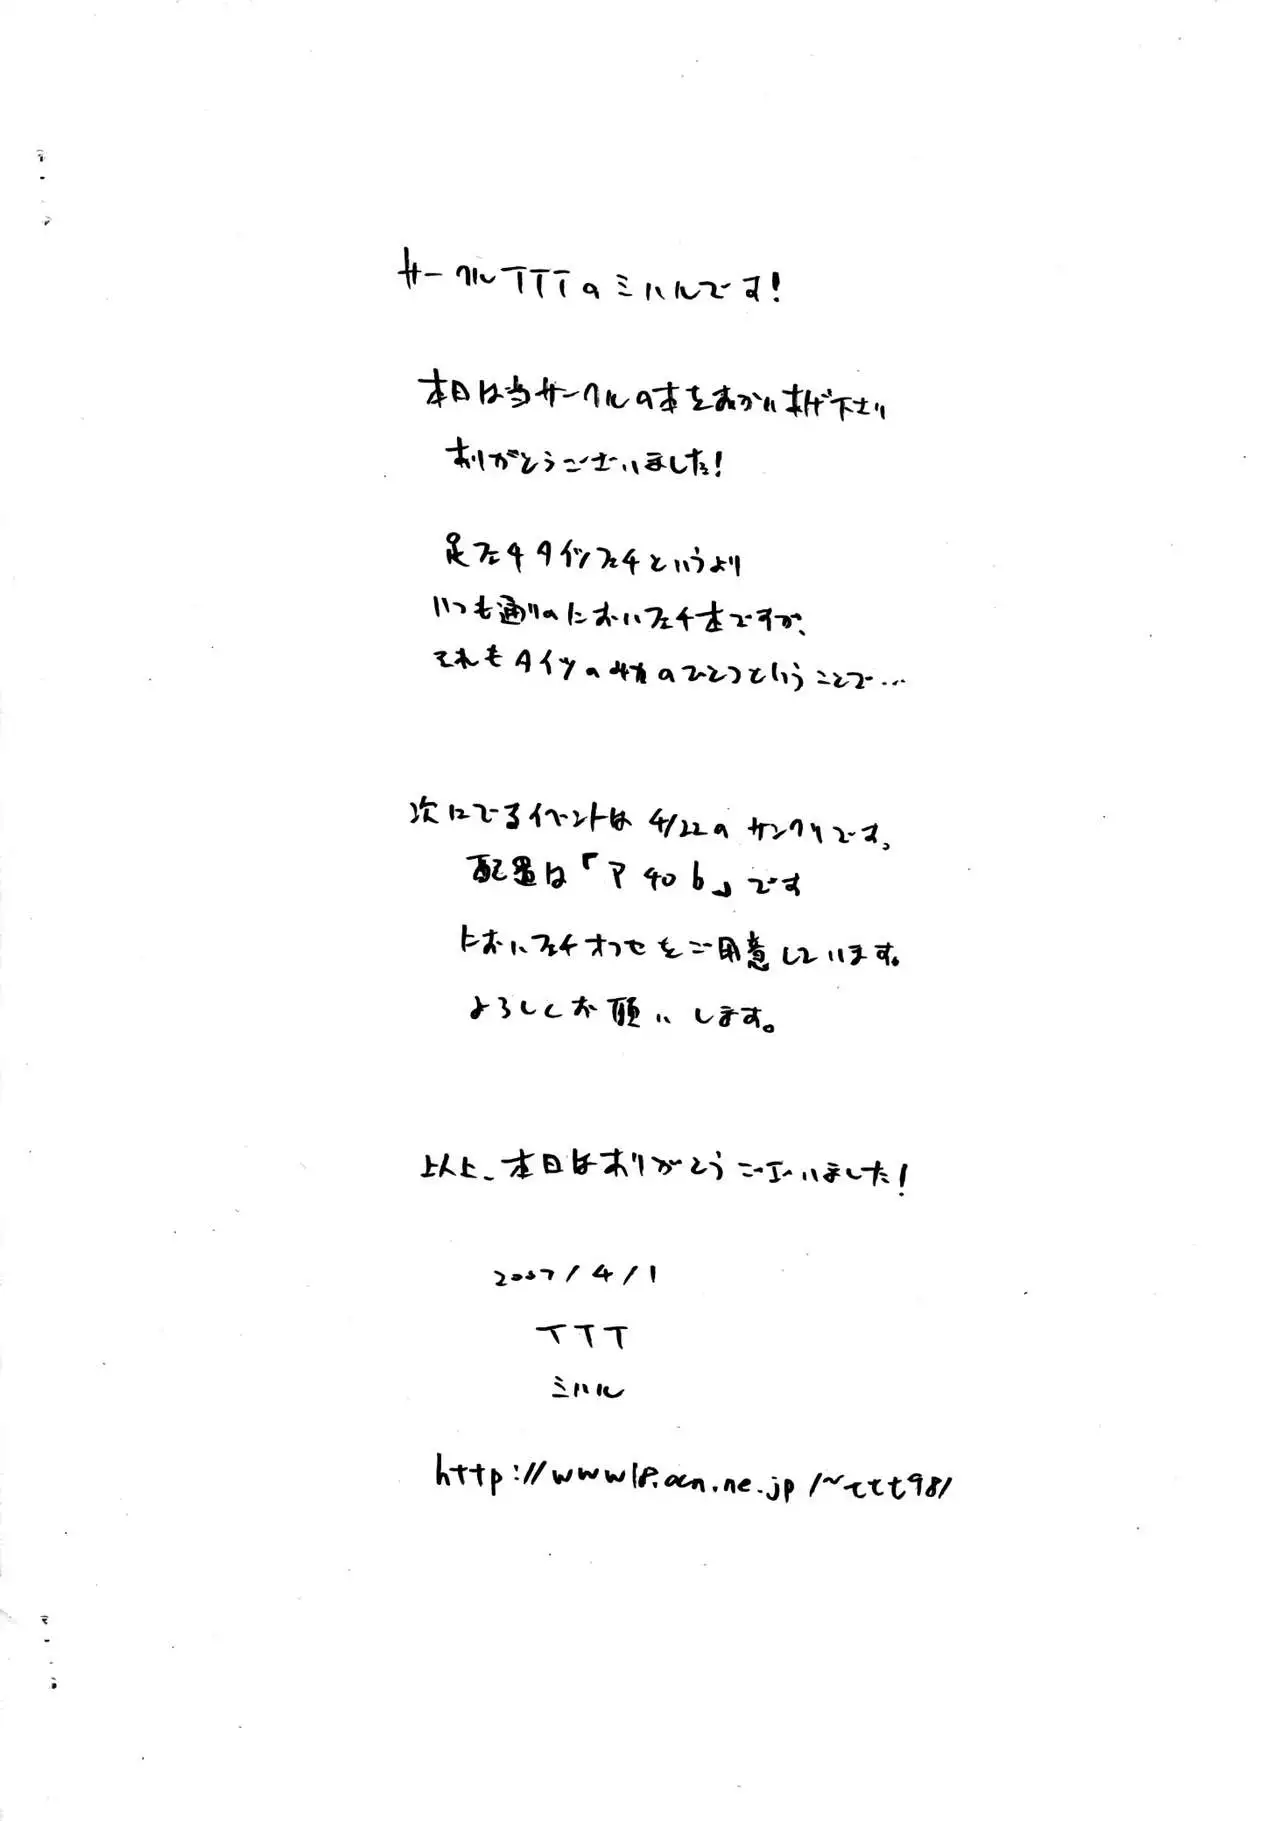 サークルTTTのミハルです!
本日は当サークルの本をおかい求げ下さり
ありがとうございました!
足フェチタイツフェチというより
いつも通りのにおいフェチ本ですが、
それもタイツの魅力のひとつということで…
次にでるイベントは 4/22の サンクリです。
配置は「ア40b」です
においフェチオフセをご用意しています。
よろしくお願いします。
以上、本日はありがとうございました!
2007/4/1
TTT
ミハル
http://www18.ocn.ne.jp/~ttt98/